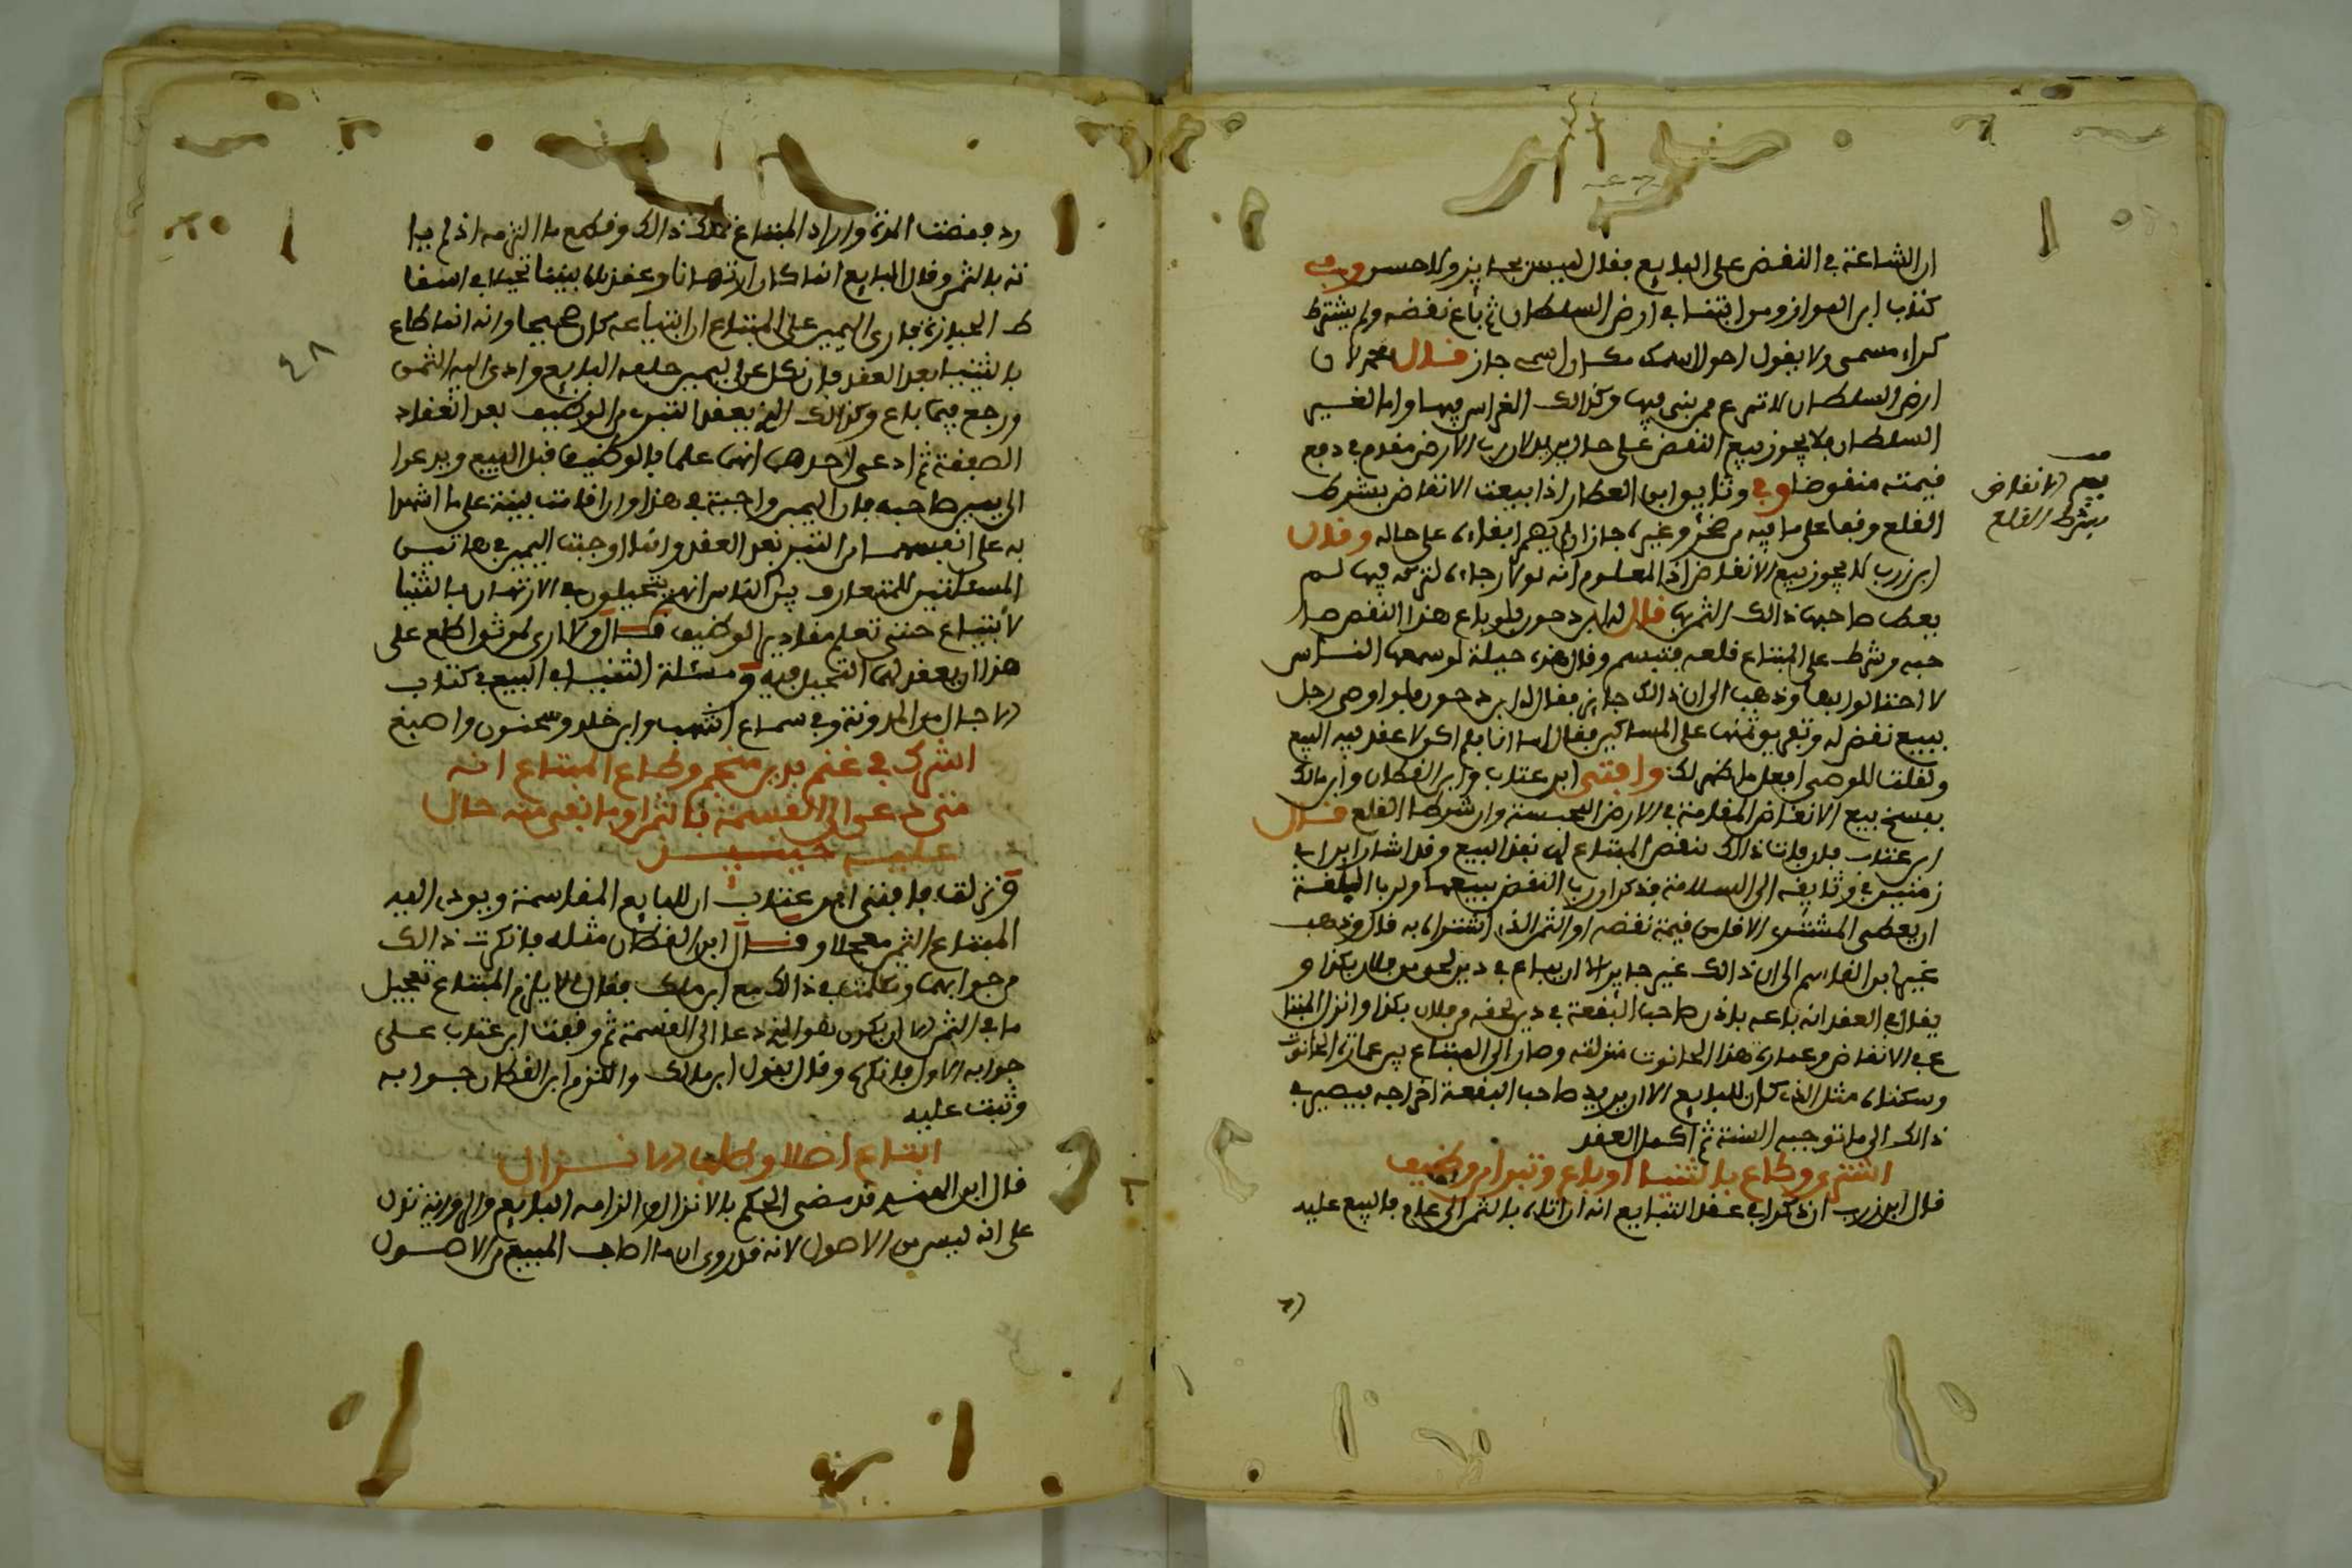 ان الشاعة في النقض على البايع فقال ليس بجايز ولا حسن وفي
كتاب ابن المواز ومن ابتنا في ارض السلطان ثم باع نقضه ولم يشترط
كراء مسمى ولا يقول احولا سمك جاز قال محمد لان
ارض السلطان لا تمنع ممن بنى فيها وكذالك الغراس فيها واما لغير
السلطان فلا يجوز بيع النقض على حال يريد لان رب الارض مقدم في دفع
قيمته منقوضا وفي وثايق ابن العطار اذا بيعت الانقاض بشرط
القلع وقعا على ما فيه من صخر وغيره جاز ان لم يبقاه على حاله وقال
ابن زرب لا يجوز بيع الانقاض اذ المعلوم انه لولا رجاء لتركه فيها لم
يعط صاحبها ذالك الثمن بها قال له ابن دحون فلو باع هذا النقض صا
حبه وشرط على المبتاع قلعه فتبسم وقال هذه حيلة لو سمعها الناس
لاحتالوا بها وذهب الى ان ذالك جايز فقال له ابن دحون فلو اوصى رجل
ببيع نقض له وتفريق ثمنه على المساكين فقال اما انا فلم اكن لا عقد فيه البيع
ولقلت للوصي افعل ما ظهر لك وافتى ابن عتاب وابن القطان وابن مالك
بفسخ بيع الانقاض المقامة في الارض المحبسة وان شرط القلع قال
ابن عتاب فان فات ذالك بنقض المبتاع له نفذ البيع وقد اشار ابن ابي
زمنين في وثايقه الى السلامة فذكر ان رب النقض يبيعها ولرب البقعة
ان يعطي المشتري الاقل من قيمة نقضه او الثمن الذي اشتراه به قال وذهب
غير ابن القاسم الى ان ذالك غير جايز الا ان يباع في دين لحق من فلان بكذا و
يقال في العقد انه باعه باذن صاحب البقعة في دين لحقه من فلان بكذا وانزل المبتا
ع في الانقاض وعمارة هذا الحانوت منزلته وصار الى المبتاع من عمارة الحانوت
وسكناه مثل الذي كان للبايع الا ان يريد صاحب البقعة اخراجه فيصير في
ذالك الى ما توجبه السنة ثم اكمل العقد
اشترى وطاع بالثنيا او باع وتبرا من وظيف
قال ابن زرب ان ذكرا في عقد التبايع انه ان اتاه بالثمن الى عام فالبيع عليه
بيع الانقاض
بشرط القلع
رد فمضت المدة واراد المبتاع تملك ذالك وقطع ما التزمه اذ لم يا
ته بالثمن وقال البايع انما كان ارتهانا وعقدنا بيننا تحيلا في اسقا
ط الحيازة فارى اليمين على المبتاع ان ابتياعه كان صحيحا وانه انما طاع
بالثنيا بعد العقد فان نكل عن اليمين حلف البايع وادى اليه الثمن
ورجع فيما باع وكذالك الذي يعقد التبري من الوظيف بعد انعقاد
الصفقة ثم ادعى احدهما انهما علما بالوظيف قبل البيع ويدعوا
الى يمين صاحبه فان اليمين واجبة في هذا وان قامت بينة على ما اشهدا
به على انفسهما من التبري بعد العقد وانما اوجبت اليمين في هاتين
المسئلتين للمتعارف بين الناس انهم يتحيلون في الارتهان بالثنيا
لابتياع حتى تعلم مقادير الوظيف قال ولا ارى لموثق اطلع على
هذا ان يعقد لهما التحيل فيه ومسئلة الثنيا في البيع في كتاب
الاجال من المدونة وفي سماع اشهب وابن خالد وسحنون واصبغ
اشرك في غنم بدين منجم وطاع المبتاع انه
متى دعى الى القسمة فالثمن او ما بقى منه حال
عليه حينئذ
ونزلت فافتى ابن عتاب ان للبايع المقاسمة ويودي اليه
المبتاع الثمن معجلا وقال ابن القطان مثله فانكرت ذالك
من جوابهما وتكلمت في ذالك مع ابن مالك فقال لي لا يلزم المبتاع تعجيل
ما في الثمن الا ان يكون هو الذي دعا الى القسمة ثم وقفت ابن عتاب على
جوابه الاول فانكره وقال بقول ابن مالك والتزم ابن القطان جوابه
وثبت عليه
ابتاع اصلا وطلب الانزال
قال ابن الهندي قد مضى الحكم بالانزال والزامه البايع والرواية تدل
على انه ليس من الاصول لانه قد روى ان ما اصاب المبيع من الاصول
٤٨